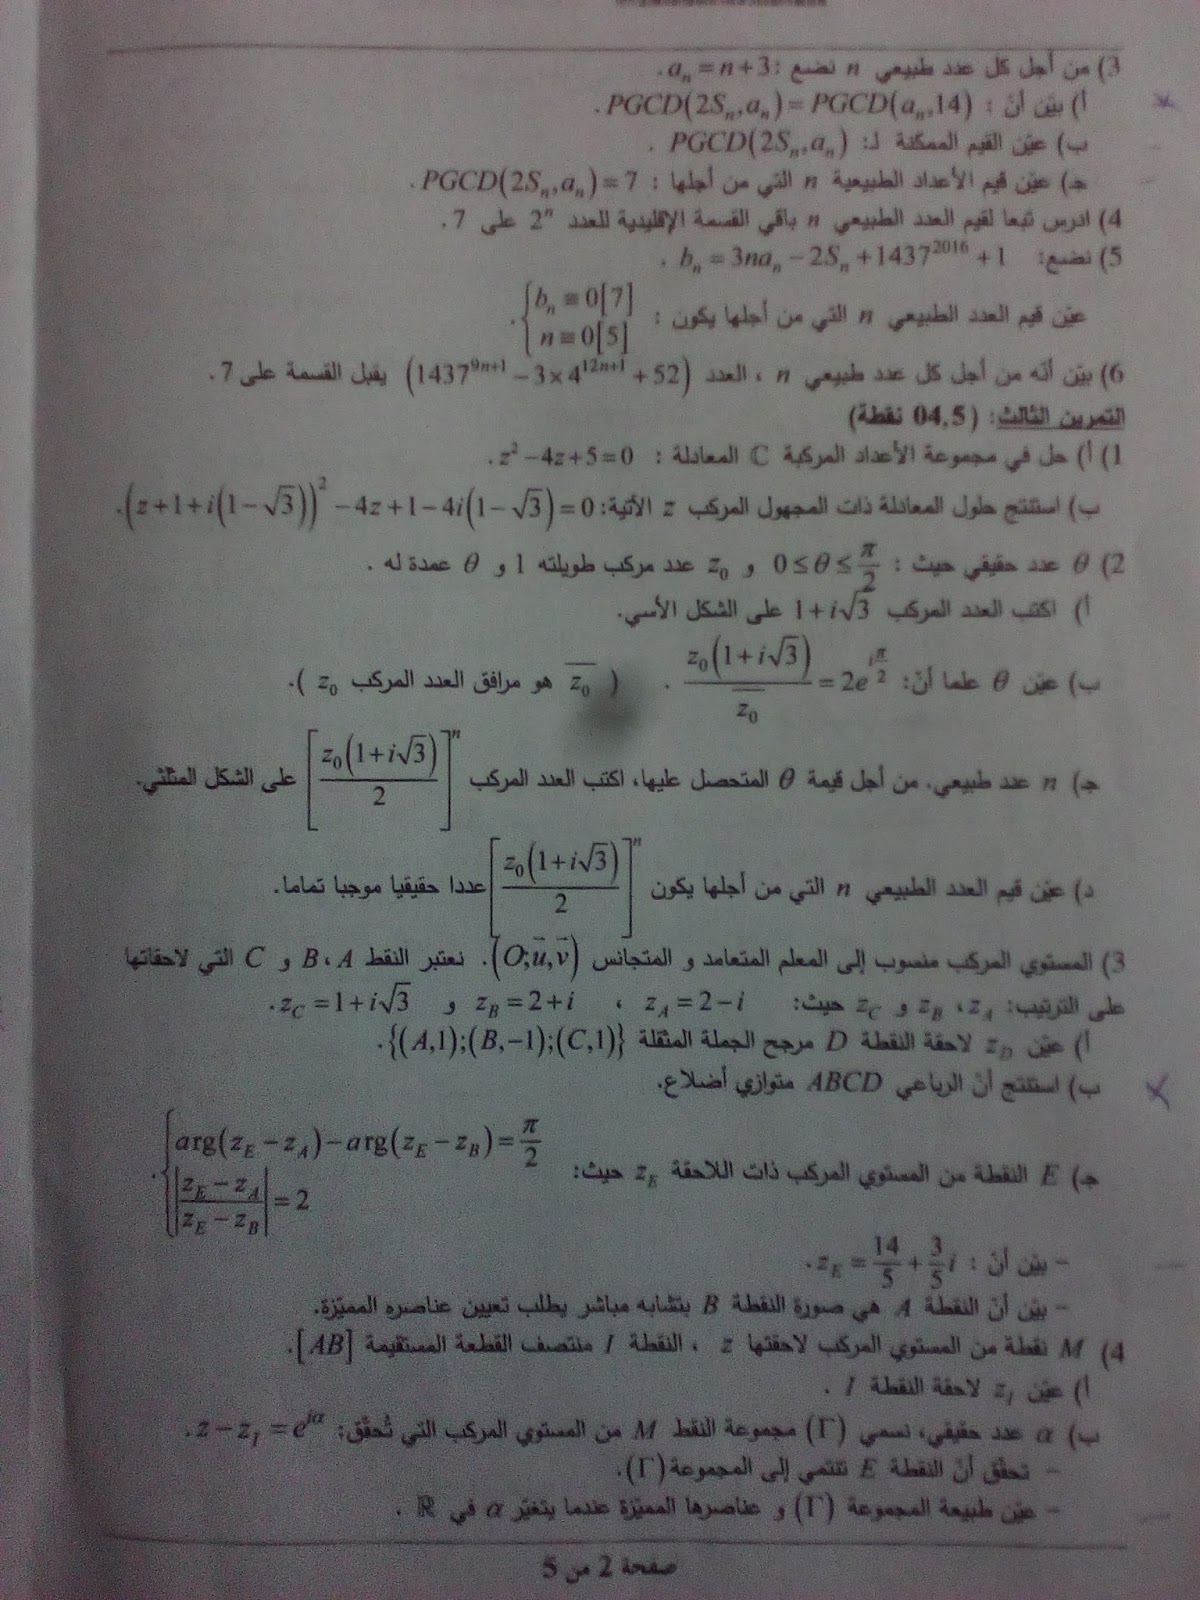 3) من أجل كل عدد طبيعي n نضع : aₙ = n+3.
أ) بيّن أنّ : PGCD(2Sₙ,aₙ) = PGCD(aₙ,14).
ب) عيّن القيم الممكنة لـ: PGCD(2Sₙ,aₙ) .
جـ) عيّن قيم الأعداد الطبيعية n التي من أجلها : PGCD(2Sₙ,aₙ) = 7.
4) ادرس تبعا لقيم العدد الطبيعي n باقي القسمة الإقليدية للعدد 2ⁿ على 7.
5) نضع: bₙ = 3naₙ − 2Sₙ + 1437²⁰¹⁶ + 1 .
عيّن قيم العدد الطبيعي n التي من أجلها يكون : { bₙ ≡ 0[7]
n ≡ 0[5] .
6) بيّن أنّه من أجل كل عدد طبيعي n ، العدد (1437⁹ⁿ⁺¹ − 3×4¹²ⁿ⁺¹ + 52) يقبل القسمة على 7.
التمرين الثالث: (04,5 نقطة)
1) أ) حل في مجموعة الأعداد المركبة ℂ المعادلة : z² − 4z + 5 = 0.
ب) استنتج حلول المعادلة ذات المجهول المركب z الآتية: (z+1+i(1−√3))² − 4z + 1 − 4i(1−√3) = 0.
2) θ عدد حقيقي حيث : 0 ≤ θ ≤ π/2 و z₀ عدد مركب طويلته 1 و θ عمدة له .
أ) اكتب العدد المركب 1+i√3 على الشكل الأسي.
ب) عيّن θ علما أنّ: z₀(1+i√3)/z̅₀ = 2e^(iπ/2) . ( z̅₀ هو مرافق العدد المركب z₀ ).
جـ) n عدد طبيعي. من أجل قيمة θ المتحصل عليها، اكتب العدد المركب [z₀(1+i√3)/2]ⁿ على الشكل المثلثي.
د) عيّن قيم العدد الطبيعي n التي من أجلها يكون [z₀(1+i√3)/2]ⁿ عددا حقيقيا موجبا تماما.
3) المستوي المركب منسوب إلى المعلم المتعامد و المتجانس (O;u⃗,v⃗). نعتبر النقط A ، B و C التي لاحقاتها
على الترتيب: z_A ، z_B و z_C حيث: z_A = 2−i ، z_B = 2+i و z_C = 1+i√3.
أ) عيّن z_D لاحقة النقطة D مرجح الجملة المثقلة {(A,1);(B,−1);(C,1)}.
ب) استنتج أنّ الرباعي ABCD متوازي أضلاع.
جـ) E النقطة من المستوي المركب ذات اللاحقة z_E حيث: { arg(z_E − z_A) − arg(z_E − z_B) = π/2
|(z_E − z_A)/(z_E − z_B)| = 2 .
– بيّن أنّ : z_E = 14/5 + 3/5 i.
– بيّن أنّ النقطة A هي صورة النقطة B بتشابه مباشر يطلب تعيين عناصره المميّزة.
4) M نقطة من المستوي المركب لاحقتها z ، النقطة I منتصف القطعة المستقيمة [AB].
أ) عيّن z_I لاحقة النقطة I .
ب) α عدد حقيقي، نسمي (Γ) مجموعة النقط M من المستوي المركب التي تُحقّق: z − z_I = e^(iα).
– تحقّق أنّ النقطة E تنتمي إلى المجموعة (Γ).
– عيّن طبيعة المجموعة (Γ) و عناصرها المميّزة عندما يتغيّر α في ℝ .
صفحة 2 من 5